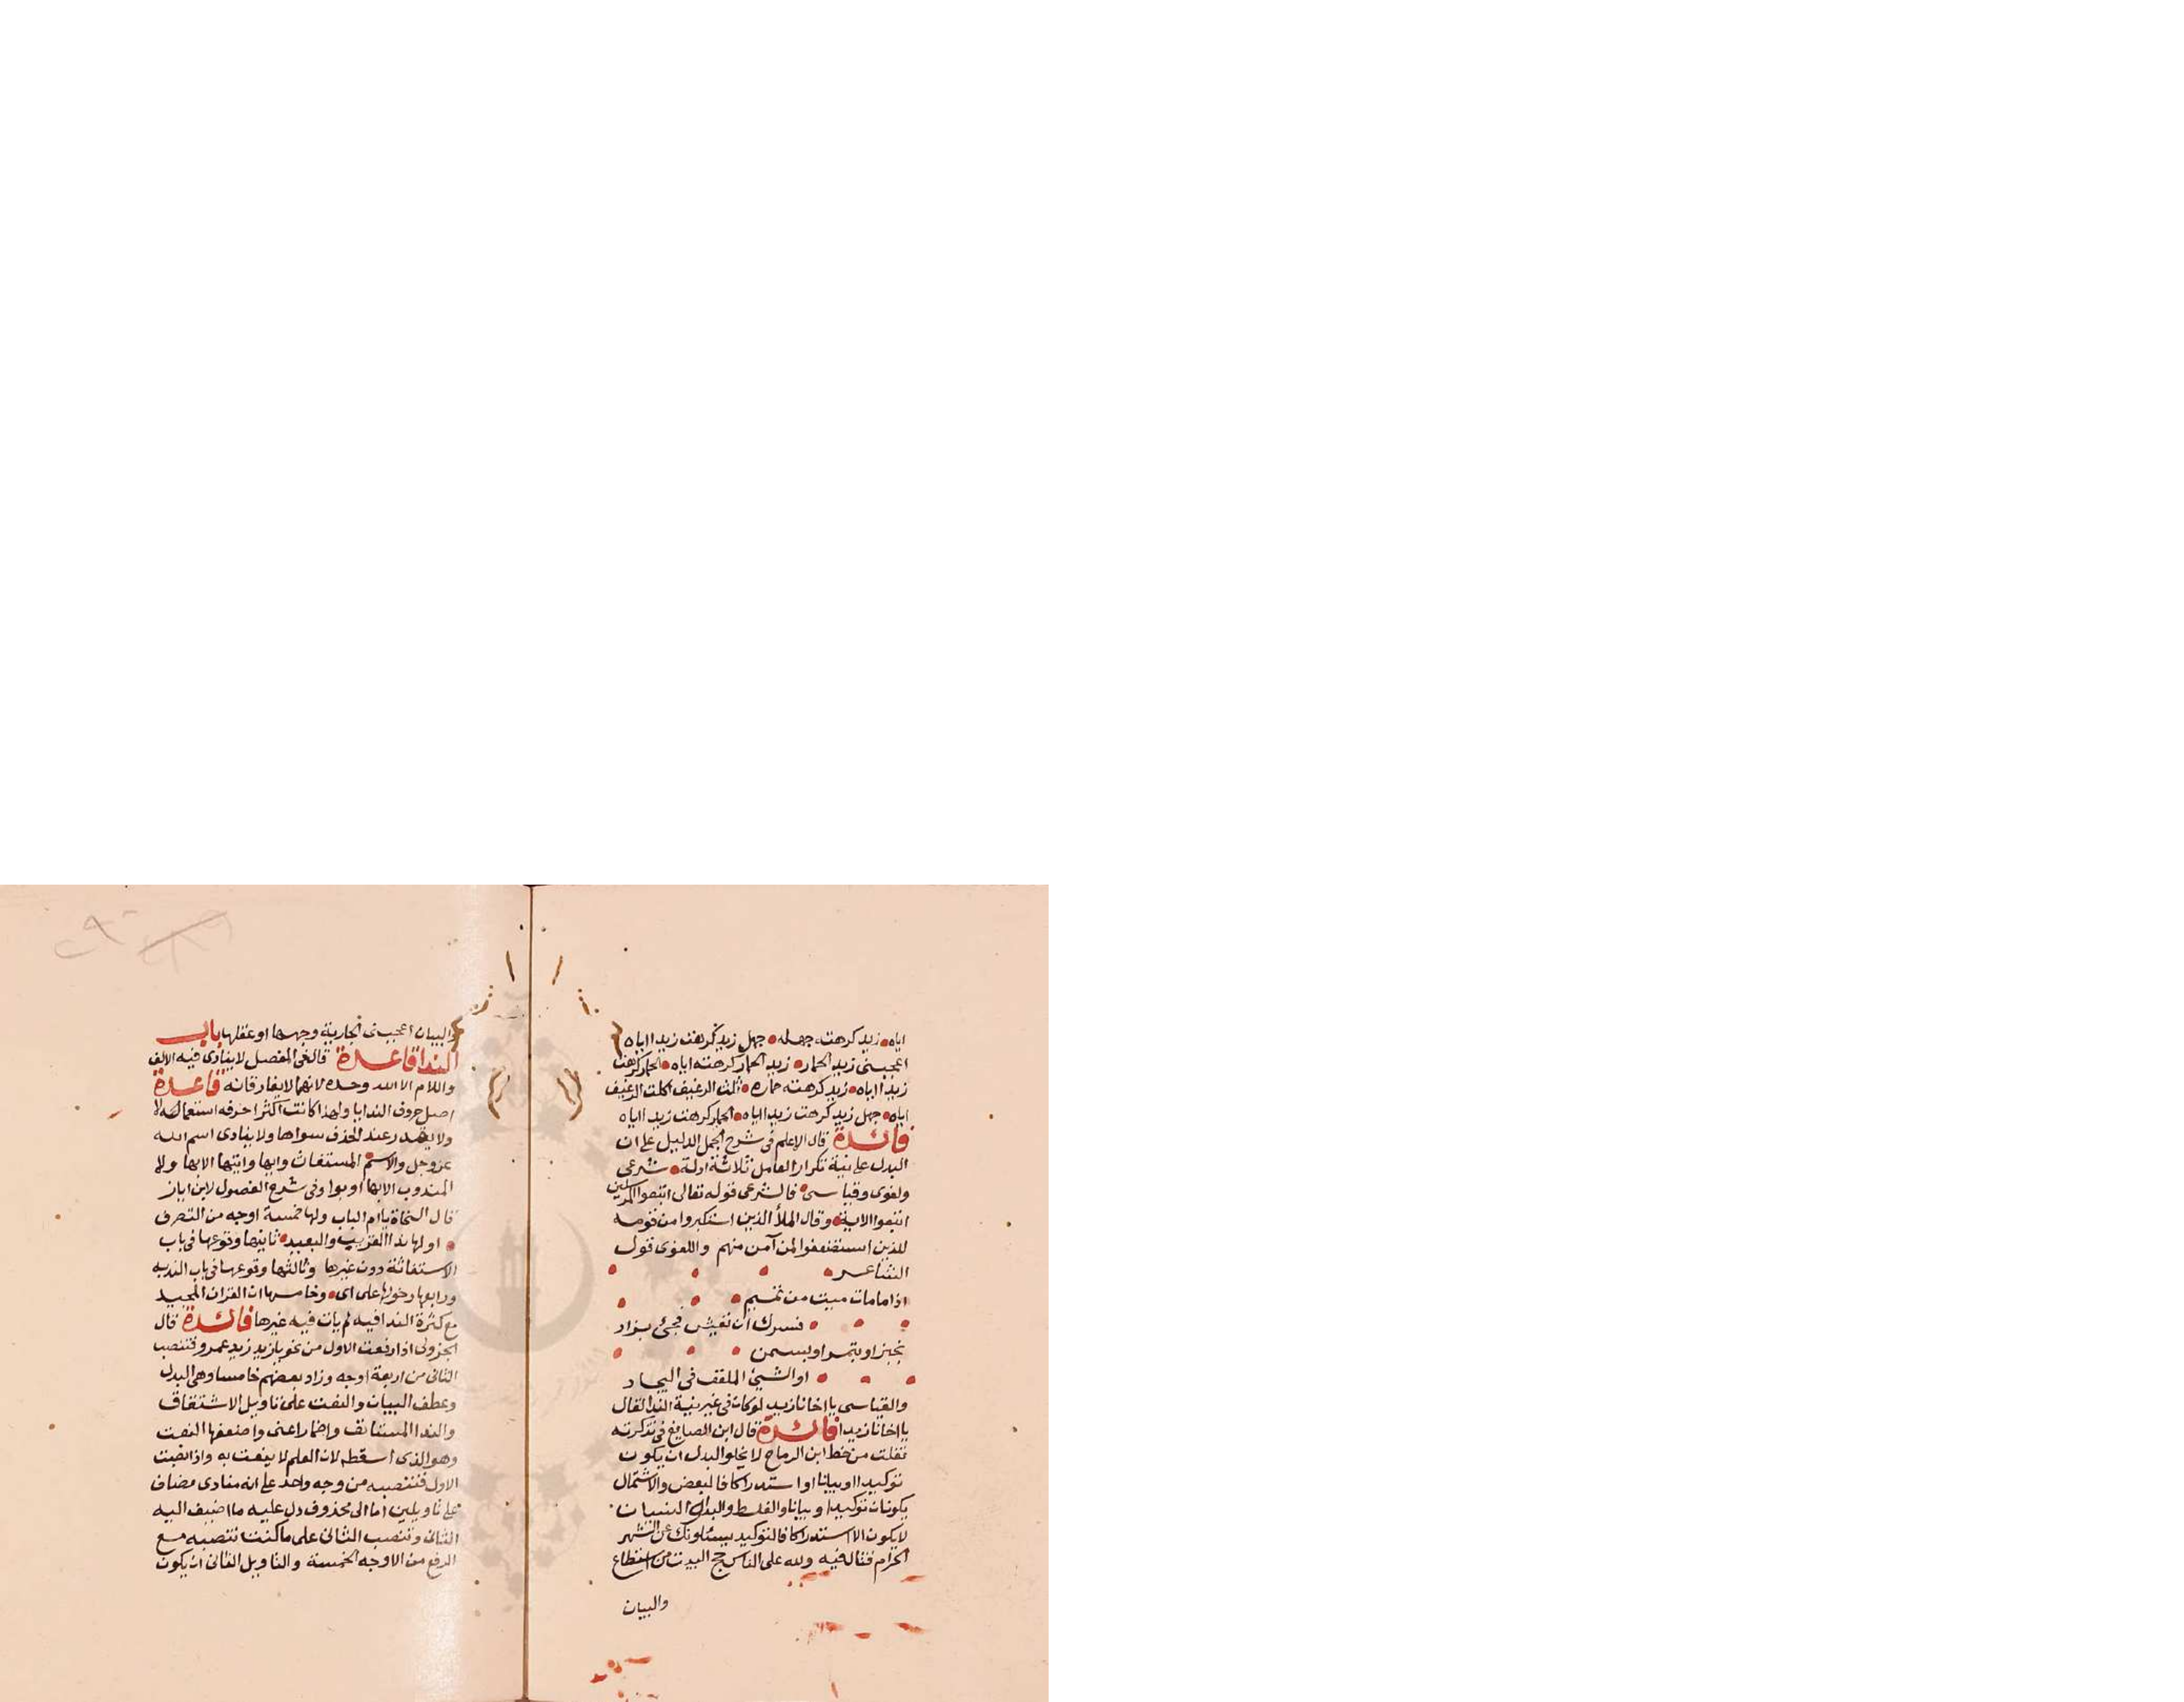 اياه زيد كرهته جهله جهل زيد كرهت زيدا اياه
اعجبنى زيد الحمار زيد الحمار كرهته اياه الحمار كرهت
زيدا اياه زيد كرهته حماره ثلث الرغيف اكلت الرغيف
اياه جهل زيد كرهت زيدا اياه الحمار كرهت زيدا اياه
فائدة قال الاعلم فى شرح الجمل الدليل على ان
البدل على نية تكرار العامل ثلاثة ادلة شرعى
ولغوى وقياسى فالشرعى قوله تعالى اتبعوا المرسلين
اتبعوا الاية وقال الملأ الذين استكبروا من قومه
للذين استضعفوا لمن آمن منهم واللغوى قول
الشاعر
اذا ما مات ميت من تميم
فسرك ان تعيش فجئ بزاد
بخبز او بتمر او بسمن
او الشيئ الملفف فى البجاد
والقياسى يا اخانا زيد لو كان فى غير نية الندا لقال
يا اخانا زيدا فائدة قال ابن الصايغ فى تذكرته
نقلت من خط ابن الرماح لا يخلو البدل ان يكون
توكيدا او بيانا او استدراكا فالبعض والاشتمال
يكونان توكيدا او بيانا والغلط والبدا والنسيان
لا يكون الا استدراكا فالتوكيد يسئلونك عن الشهر
الحرام قتال فيه ولله على الناس حج البيت من استطاع
والبيان
والبيان اعجبتنى الجارية وجهها او عقلها باب
الندا قاعدة قال فى المفصل لا ينادى فيه الالف
واللام الا الله وحده لانهما لا يفارقانه قاعدة
اصل حروف الندا يا ولهذا كانت اكثر احرفه استعمالا
ولا يقدر عند الحذف سواها ولا ينادى اسم الله
عز وجل والاسم المستغاث وايها وايتها الا بها ولا
المندوب الا بها او بوا وفى شرح الفصول لابن اياز
قال النحاة يا ام الباب ولها خمسة اوجه من التصرف
اولها ندا القريب والبعيد ثانيها وقوعها فى باب
الاستغاثة دون غيرها وثالثها وقوعها فى باب الندبه
ورابعها دخولها على اى وخامسها ان القران المجيد
مع كثرة الندا فيه لم يات فيه غيرها فائدة قال
الجزولى اذا رفعت الاول من نحو يا زيد زيد عمرو فتنصب
الثانى من اربعة اوجه وزاد بعضهم خامسا وهى البدل
وعطف البيان والنعت على تاويل الاشتقاق
والندا المستانف واضمار اعنى واضعفها النعت
وهو الذى اسقط لان العلم لا ينعت به واذا نصبت
الاول فتنصبه من وجه واحد على انه منادى مضاف
على تاويلين اما الى محذوف دل عليه ما اضيف اليه
الثانى وتنصب الثانى على ما كنت تنصبه مع
الرفع من الاوجه الخمسة والتاويل الثانى ان يكون